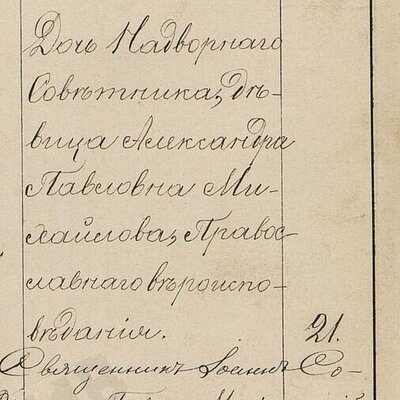 Дочь Надворнаго
Совѣтника, дѣ-
вица Александра
Павловна Ми-
хайлова, Правос-
лавнаго вѣроиспо-
вѣданія. 21.
Священникъ Іоаннъ Со-